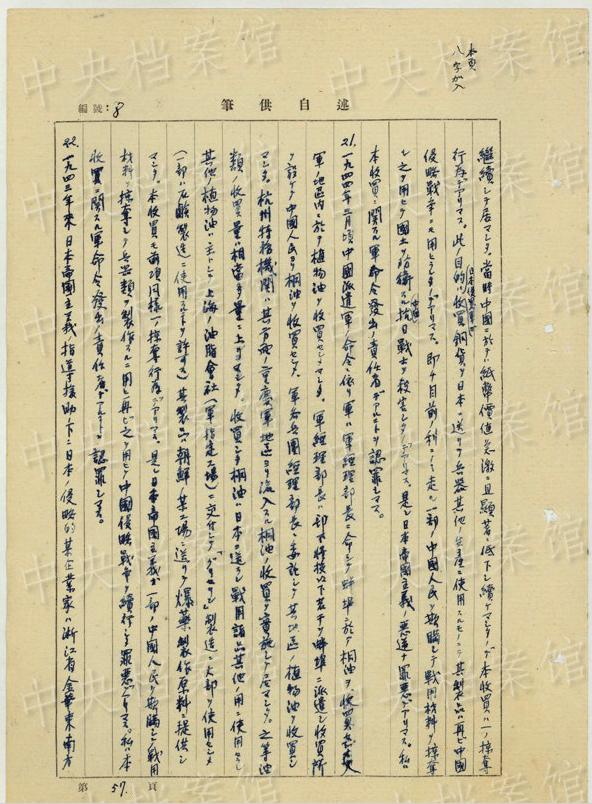 中央档案馆
本頁
八字加入
編號:8
述自供筆
継続シテ居マシタ。當時中國ニ於テハ紙幣價値急激ニ且顕著ニ低下シ続ケマシタノデ本收買ハ一ノ掠奪
行為デアリマス。此ノ目的ハ收買銅貨ヲ日本ニ送リテ兵器其他ノ生産ニ使用スルモノニテ其製品ハ再ビ中國
侵略戦争ニ用ヒラレタノデアリマス。即チ目前ノ利ニ走ル一部ノ中國人民ヲ欺瞞シテ戦用材料ヲ掠奪
シ之ヲ用ヒテ國土防衛ノ抗日戦士ヲ殺害シタノデアリマス。是レ日本帝國主義ノ悪逆ナ罪悪デアリマス。私ハ
本收買ニ関スル軍命令発出ノ責任者デアルコトヲ認罪シマス。
21.一九四四年二月頃中國派遣軍ノ命令ニ依リ軍ハ軍經理部長ニ命シテ蚌埠ニ於テ桐油ヲ收買
軍ノ地區内ニ於テ植物油ヲ收買セシメマシタ。軍經理部長ハ部下将校以下若干ヲ蚌埠ニ派遣シ收買所
ヲ設ケテ中國人民ヨリ桐油ヲ收買セシメ、軍各兵團經理部長ニ委託シテ其地區ノ植物油ヲ收買シ
マシタ。杭州特務機関ハ其以前ヨリ重慶軍地區ヨリ流入スル桐油ノ收買ヲ實施シテ居マシタ。之等油
類ノ收買量ハ相當多量ニ上リマシタ。收買シタ桐油ハ日本ニ送リ戦用諸品其他ノ用ニ使用セラレ
其他ノ植物油ハ主トシテ上海ノ油脂會社(軍指定工場)ニ交付シテ「グリセリン」製造ニ大部ヲ使用セシメ
(一部ハ石鹸製造ニ使用スルコトヲ許ス)其製品ハ朝鮮ノ某工場ニ送リテ爆薬製作原料ニ提供シ
マシタ。本收買モ前項同様一ノ掠奪行為デアリマス。是レ日本帝國主義ガ一部ノ中國人民ヲ欺瞞シテ戦用
材料ヲ掠奪シテ兵器類ヲ製作スルニ用ヒ再ビ之ヲ用ヒテ中國侵略戦争ヲ続行シタ罪悪デアリマス。私ハ本
收買ニ関スル軍命令発出ノ責任者デアルコトヲ認罪シマス。
22.一九四三年來日本帝國主義指導援助下ニ日本ノ侵略的某企業家ハ浙江省金華東南方
第 57. 頁